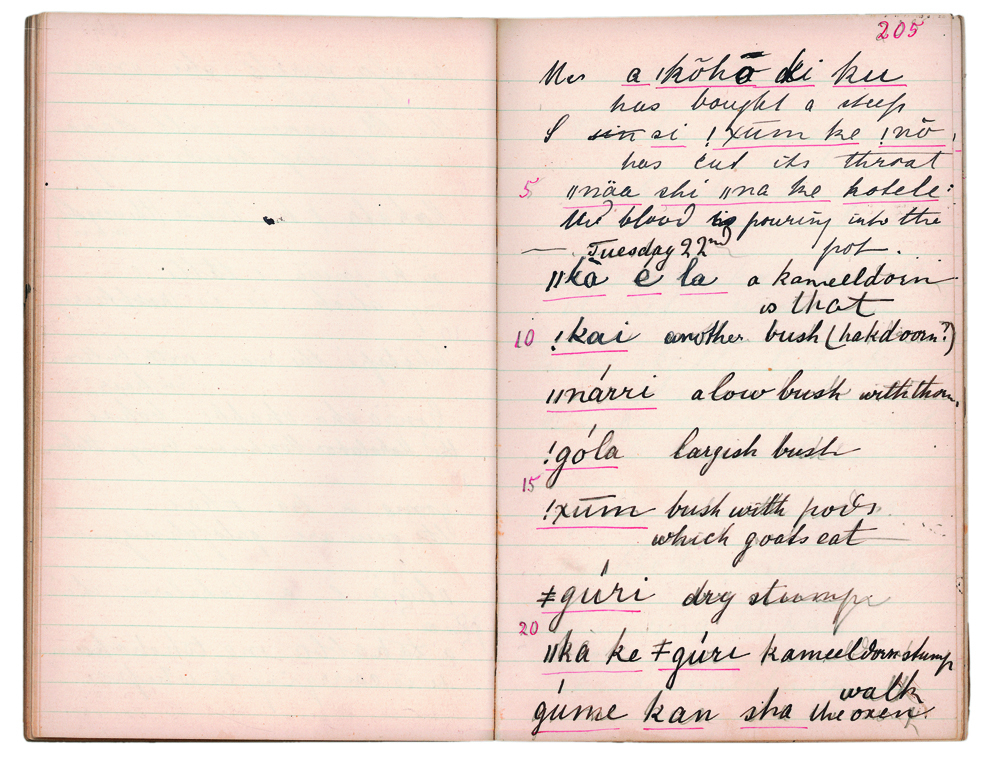 205
a !kōhō ki ku
has bought a sheep
I sin si !xūm ke !nō
has cut its throat
5 ǁnäa shi ǁna ke kotele:
The blood is pouring into the
— Tuesday 22nd pot.
ǁkā é la a kameeldoin
is that
10 !kai another bush (hakdoorn?)
ǁnárri a low bush with thorn.
!góla largish bush
15
!xūm bush with pods
which goats eat
ǂgúri dry stump
20
ǁka ke ǂgúri kameeldorn stump
walk
gúme kan sha the oxen.